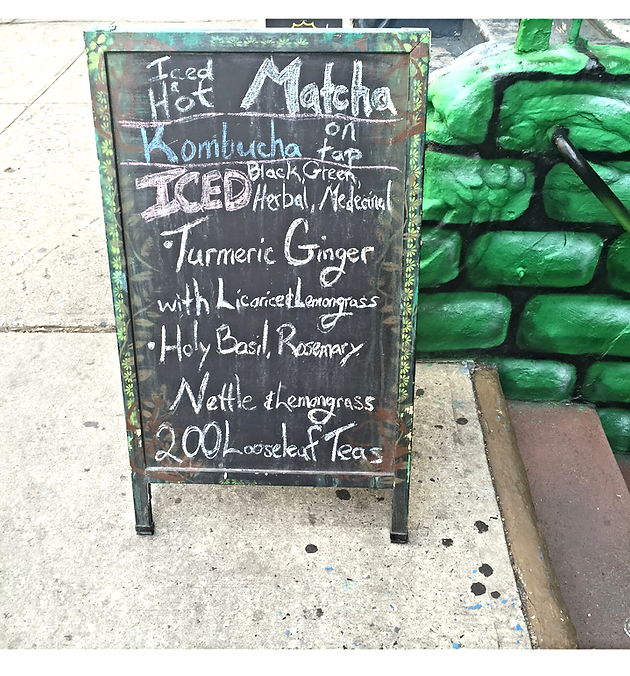 Iced
& Hot Matcha
Kombucha on tap
ICED Black, Green,
Herbal, Medecinal
• Turmeric Ginger
with Licorice & Lemongrass
• Holy Basil, Rosemary
Nettle & Lemongrass
200 Looseleaf Teas